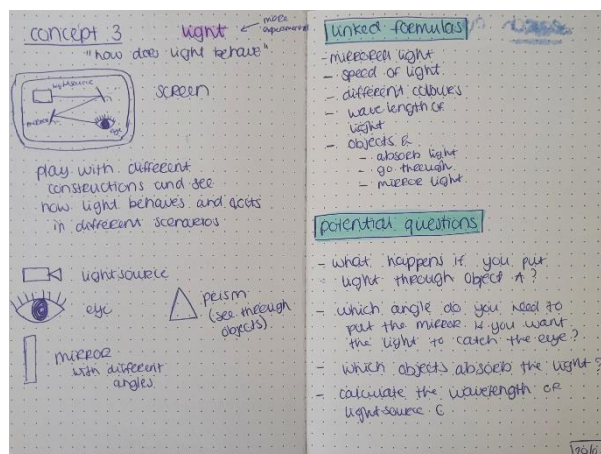 concept 3
light
more experimental
"how does light behave"
lightsource
mirror
eye
screen
play with different
constructions and see
how light behaves and acts
in different scenarios
lightsource
eye
prism
(see through
objects)
mirror
with different
angles
linked formulas
- mirroren light
- speed of light
- different colours
- wave length of
light
- objects &
- absorb light
- go through
- mirror light
potential questions
- what happens if you put
light through object A?
- which angle do you need to
put the mirror if you want
the light to catch the eye?
- which objects absorb the light?
- calculate the wavelength of
lightsource C